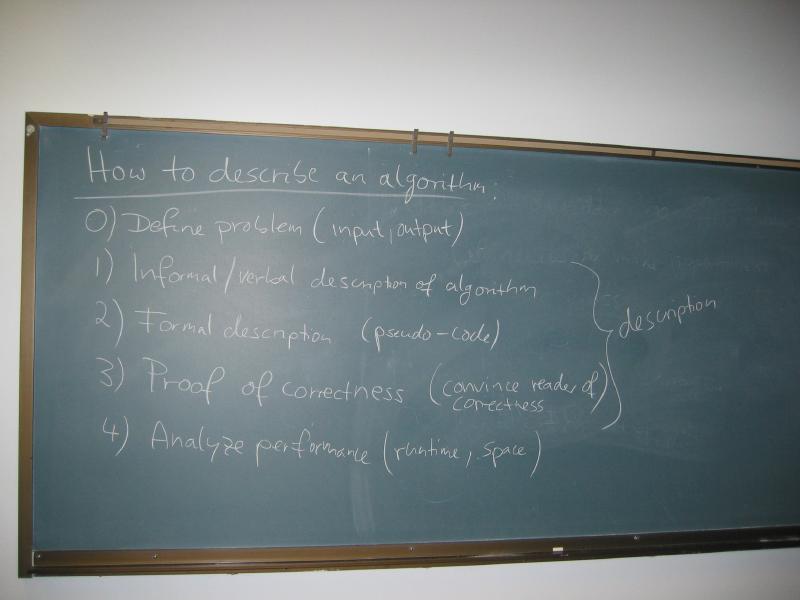 How to describe an algorithm:
0) Define problem (input, output)
1) Informal/verbal description of algorithm
2) Formal description (pseudo-code)
description
3) Proof of correctness (convince reader of
correctness)
4) Analyze performance (runtime, space)